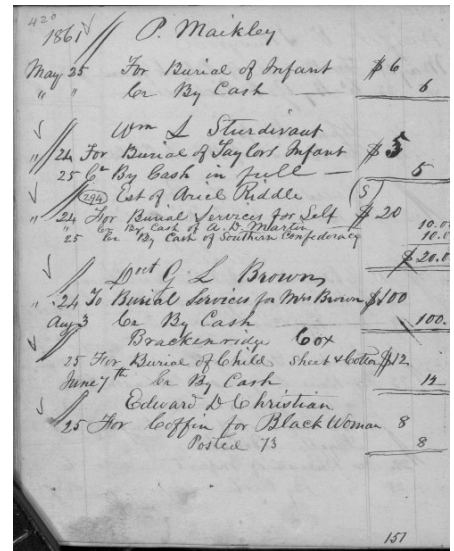 420
1861 P. Maikley
May 25 For Burial of Infant $6
" " Cr By Cash — 6
Wm L Sturdivant
" 24 For Burial of Taylors Infant $5
25 Cr By Cash in full — 5
294 Est of Ariel Riddle (S)
" 24 For Burial Services for Self $20
" Cr By Cash of A. D. Martin 10.00
25 Cr By Cash of Southern Confederacy 10.0
$20.0
G. L. Brown
" 24 To Burial Services for Mrs Brown $100
Aug 3 Cr By Cash 100.
Brackenridge Cox
25 For Burial of Child Sheet & Cotton $12
June 7th Cr By Cash 12
Edward D Christian
25 For Coffin for Black Woman 8
Posted 73 8
151